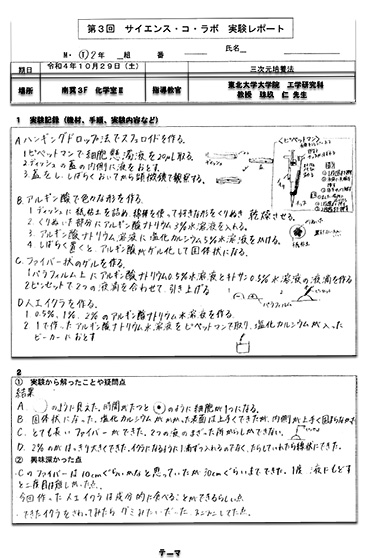 第3回 サイエンス・コ・ラボ 実験レポート
N・①2年 組 番 氏名
期日 令和4年10月29日(土) 三次元培養法
場所 南翼3F 化学室Ⅱ 指導教官 東北大学大学院 工学研究科
教授 珠玖 仁 先生
1 実験記録(機材、手順、実験内容など)
A ハンギングドロップ法でスフェロイドを作る。
1 ピペットマンで細胞懸濁液を20μL取る。
2 ディッシュの蓋の内側に液をおとす。
3 蓋をし、しばらくおいてから顕微鏡で観察する。
<ピペットマン>
B. アルギン酸で色々な形を作る。
1 ディッシュに紙粘土を詰め、棒を使って好きな形をくりぬき乾燥させる。
2 くりぬいた部分にアルギン酸ナトリウム3%水溶液を入れる。
3. アルギン酸ナトリウム水溶液に塩化カルシウム5%水溶液をかける。
4 しばらく置くと、アルギン酸がゲル化して固体状になる。
C. ファイバー状のゲルを作る。
1 パラフィルム上にアルギン酸ナトリウム0.5%水溶液とキトサン0.5%水溶液の液滴を作る
2 ピンセットで2つの液滴を合わせて、引き上げる
パラフィルム
D 人工イクラを作る。
1 0.5%, 1%, 2%のアルギン酸ナトリウム水溶液を作る。
2 1で作ったアルギン酸ナトリウム水溶液をピペットマンで取り、塩化カルシウムが入った
ビーカーにおとす
2
① 実験から解ったことや疑問点
結果
A のように見えた。時間がたつと のように細胞が1つになる。
B 固体状になった。塩化カルシウムがかかった表面は上手くできたが、内側が上手く固まらなかった
C. とても長いファイバーができた。2つの液のまざった所からしかできない。
D. 2%のがはっきり大きくできた。イクラになるように
② 興味深かった点
・Cのファイバーは10cmぐらいかなと思っていたが30cmぐらいまでできた。1度 液にもどす
と二度目は難しかった。
今回作った人工イクラは成分的に食べることができるらしい。
・できたイクラをさわってみたら グミみたいだった。
テーマ